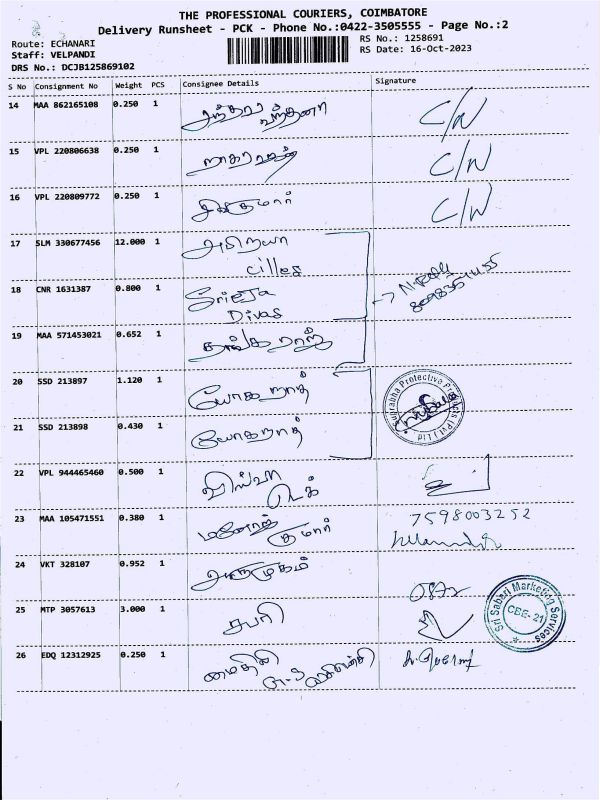 THE PROFESSIONAL COURIERS, COIMBATORE
Delivery Runsheet - PCK - Phone No.:0422-3505555 - Page No.:2
Route: ECHANARI
RS No.: 1258691
Staff: VELPANDI
RS Date: 16-Oct-2023
DRS No.: DCJB125869102
S No Consignment No Weight PCS Consignee Details Signature
14 MAA 862165108 0.250 1 வந்தனா C/N
15 VPL 220806638 0.250 1 C/N
16 VPL 220809772 0.250 1 சிவகுமார் C/N
17 SLM 330677456 12.000 1 அபிநயா
cilles
18 CNR 1631387 0.800 1 Srieja
Divas
19 MAA 571453021 0.652 1 தங்கராஜ்
20 SSD 213897 1.120 1 யோகநாத்
Suprabha Protective Products (Pvt) Ltd
21 SSD 213898 0.430 1 யோகநாத்
22 VPL 944465460 0.500 1 விஸ்வா
டெக்
23 MAA 105471551 0.380 1 மனோஜ் குமார் 7598003252
24 VKT 328107 0.952 1 ஆறுமுகம்
25 MTP 3057613 3.000 1 சபரி
Sri Sabari Marketing Services
CBE-21
26 EDQ 12312925 0.250 1 மைதிலி